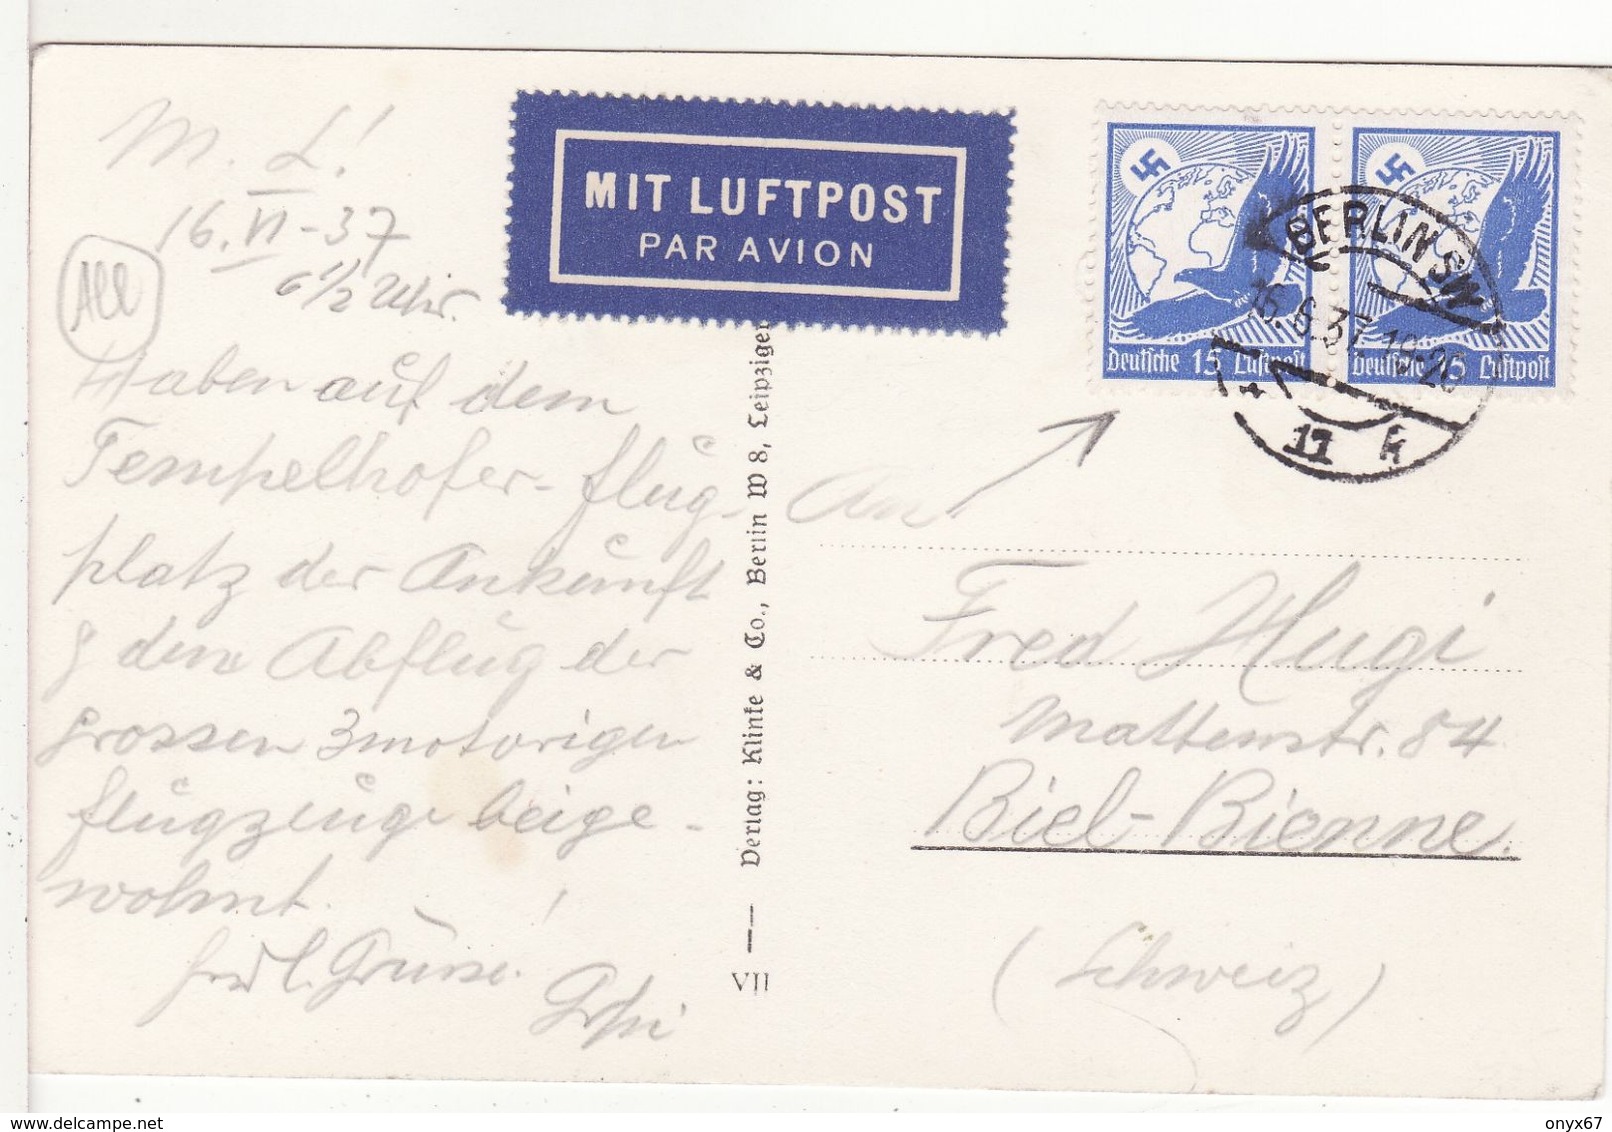 M. L!
16. VI - 37
6 1/2 Uhr.
All
Haben auf dem
Tempelhofer-flug
platz der Ankunft
& dem Abflug der
grossen 3motorigen
flugzeuge beige-
wohnt. !
Grüsse.
MIT LUFTPOST
PAR AVION
Verlag: Klinke & Co., Berlin W 8, Leipziger
VII
Deutsche 15 Luftpost
Deutsche 15 Luftpost
BERLIN SW
16.6.37. 19-20
11 k
An
Fred Hugi
Mattenstr. 84
Biel-Bienne.
(Schweiz)
onyx67